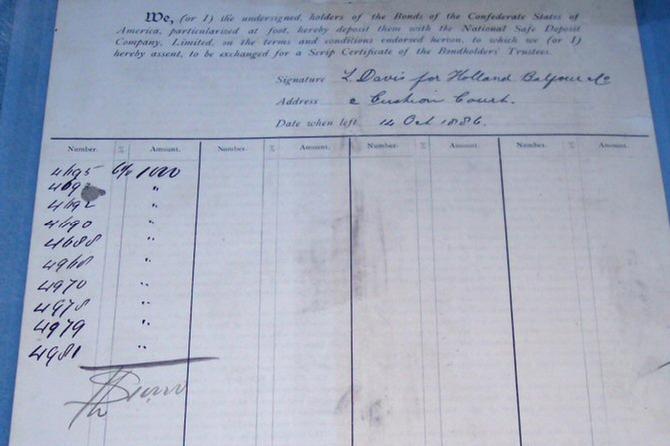 We, (or I) the undersigned, holders of the Bonds of the Confederate States of
America, particularised at foot, hereby deposit them with the National Safe Deposit
Company, Limited, on the terms and conditions endorsed hereon, to which we (or I)
hereby assent, to be exchanged for a Scrip Certificate of the Bondholders' Trustees.
Signature L. Davis for Holland Balfour & Co
Address 2 Cushion Court.
Date when left 14 Oct 1886.
Number. % Amount. Number. % Amount. Number. % Amount. Number. % Amount.
4695 6% 1000
469 "
4692 "
4690 "
4688 "
4968 "
4970 "
4978 "
4979 "
4981 "